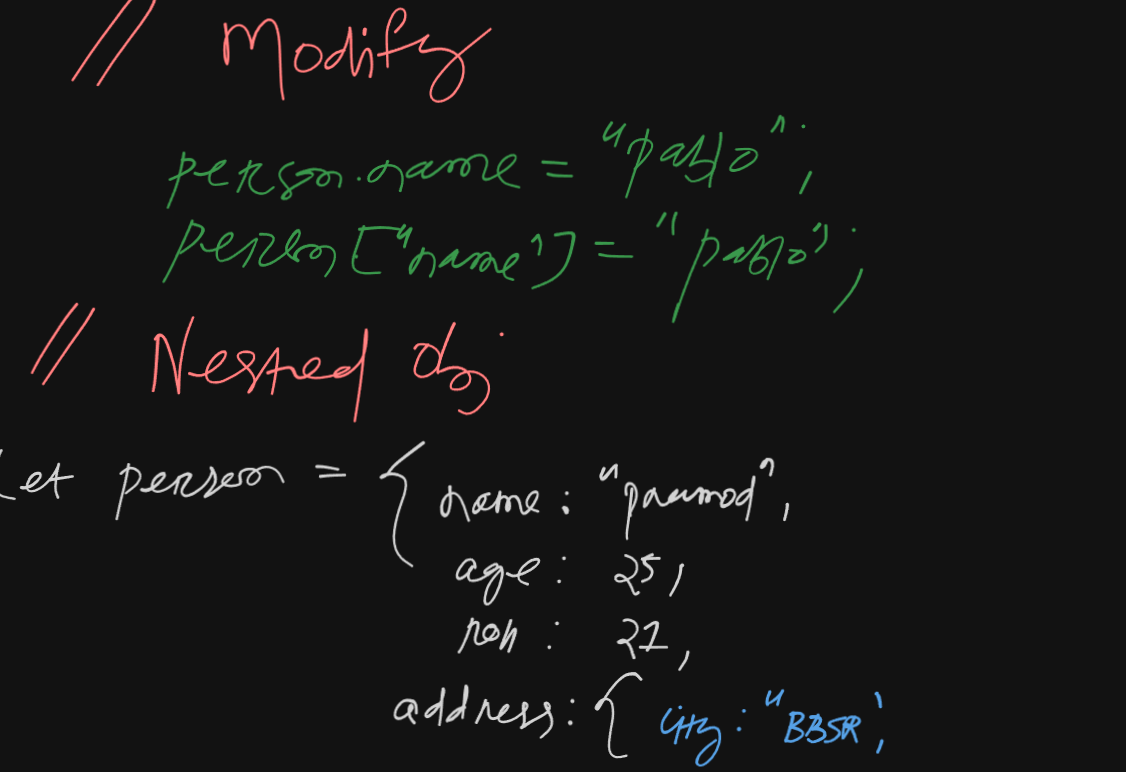 // Modify
person.name = "pablo";
person["name"] = "pablo";
// Nested obj
Let person = {
name: "pramod",
age: 25,
roh: 21,
address: { city: "BBSR",